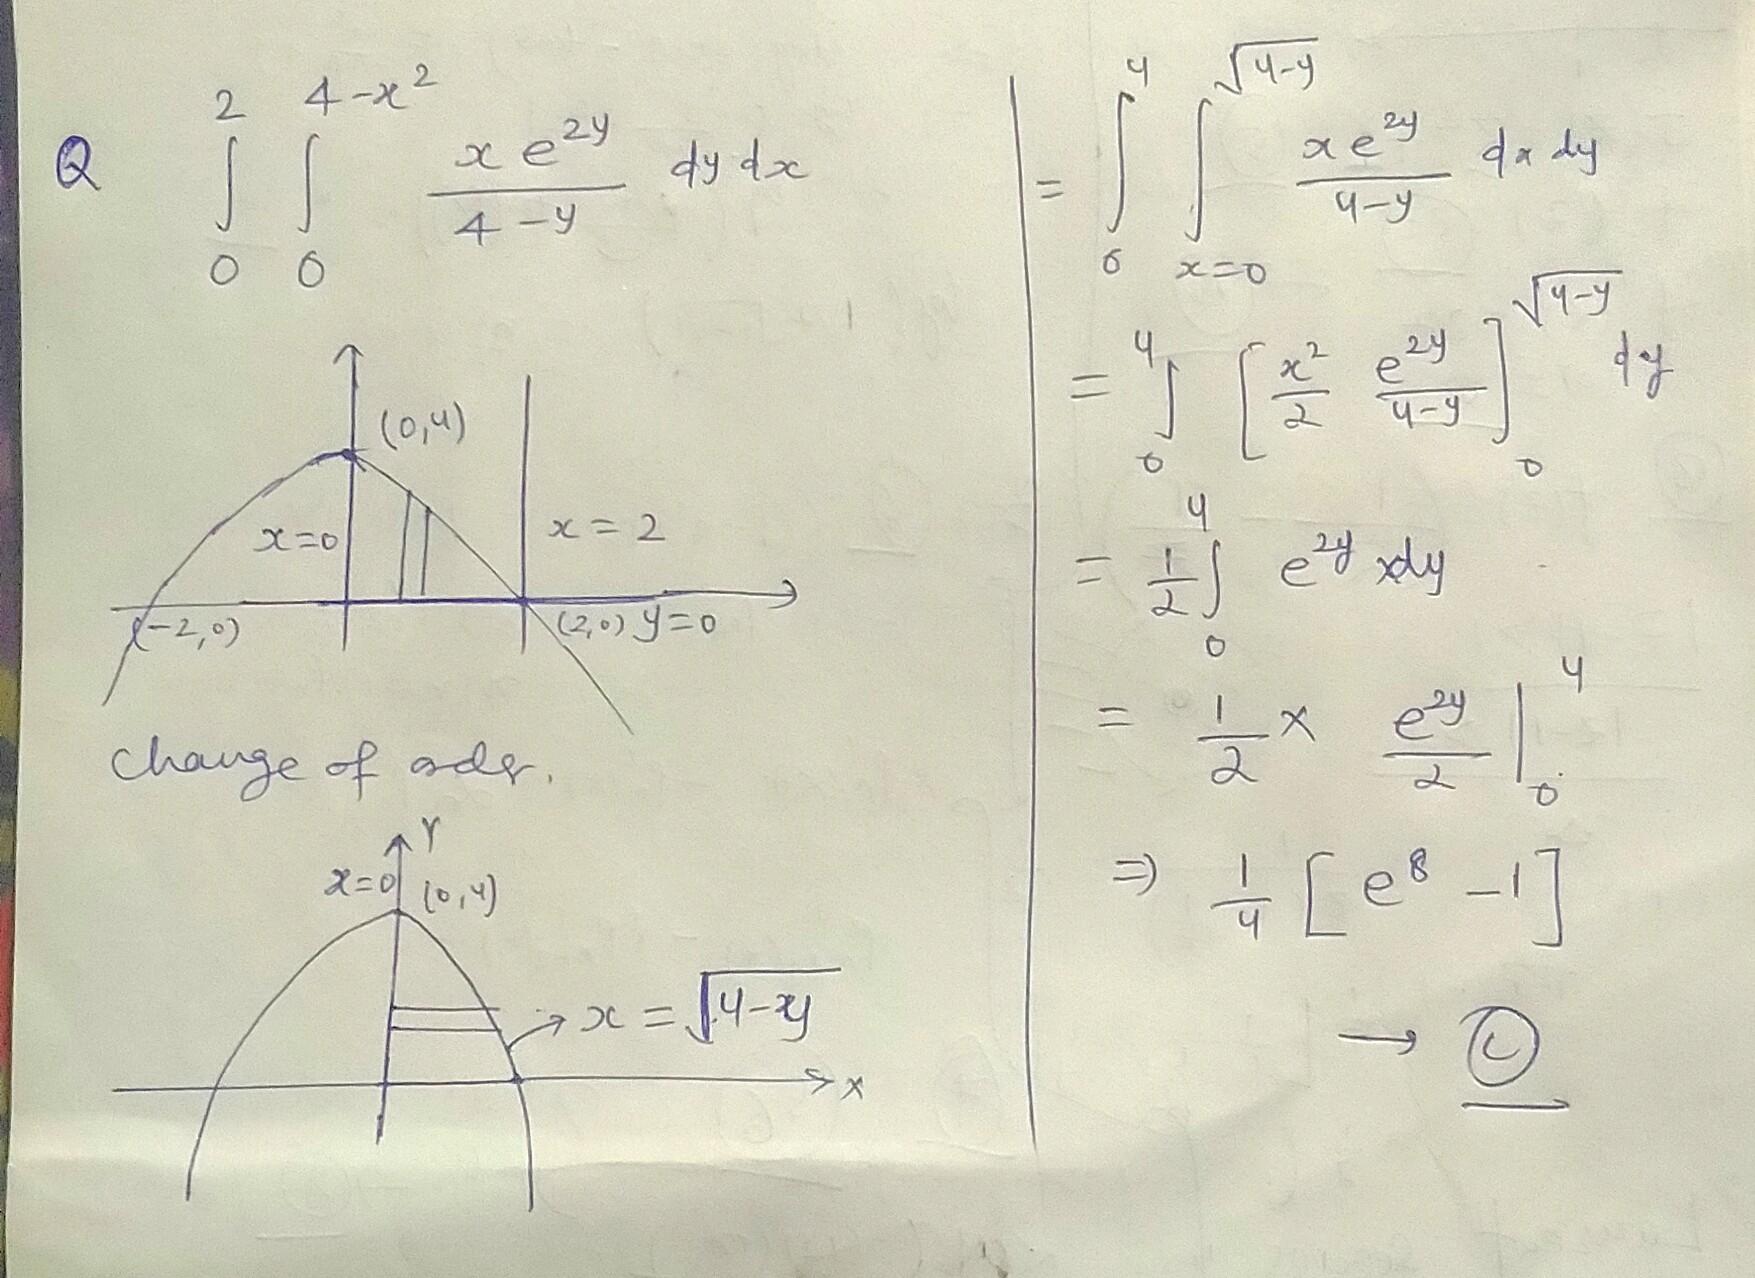 Q ∫₀² ∫₀^(4-x²) x e^(2y) / (4-y) dy dx
(0,4)
x=0 x=2
(-2,0) (2,0) y=0
Change of order.
Y
x=0 (0,4)
→ x = √(4-y)
x
= ∫₀⁴ ∫_(x=0)^√(4-y) x e^(2y) / (4-y) dx dy
= ∫₀⁴ [x²/2 e^(2y)/(4-y)]₀^√(4-y) dy
= 1/2 ∫₀⁴ e^(2y) dy
= 1/2 × e^(2y)/2 |₀⁴
⇒ 1/4 [e⁸ -1]
→ Ⓒ